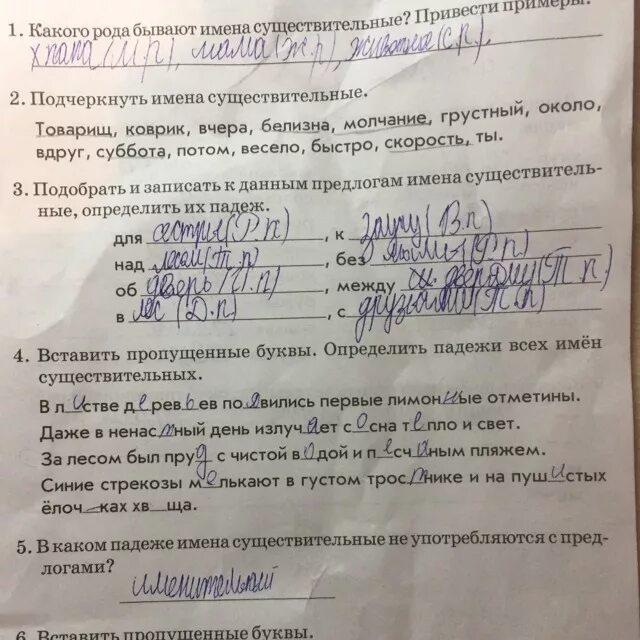 1. Какого рода бывают имена существительные? Привести примеры.
папа (М.р), мама (Ж.р), животное (С.р),
2. Подчеркнуть имена существительные.
Товарищ, коврик, вчера, белизна, молчание, грустный, около,
вдруг, суббота, потом, весело, быстро, скорость, ты.
3. Подобрать и записать к данным предлогам имена существитель-
ные, определить их падеж.
для сестры (Р.п), к (В.п)
над лесом (Т.п), без (Р.п)
об дверь (П.п), между (Т.п)
в лес (Д.п), с друзьями (Т.п)
4. Вставить пропущенные буквы. Определить падежи всех имён
существительных.
В листве деревьев появились первые лимонные отметины.
Даже в ненастный день излучает сосна тепло и свет.
За лесом был пруд с чистой водой и песчаным пляжем.
Синие стрекозы мелькают в густом тростнике и на пушистых
ёлоч_ках хв_ща.
5. В каком падеже имена существительные не употребляются с пред-
логами?
именительный
6. Вставить пропущенные буквы.